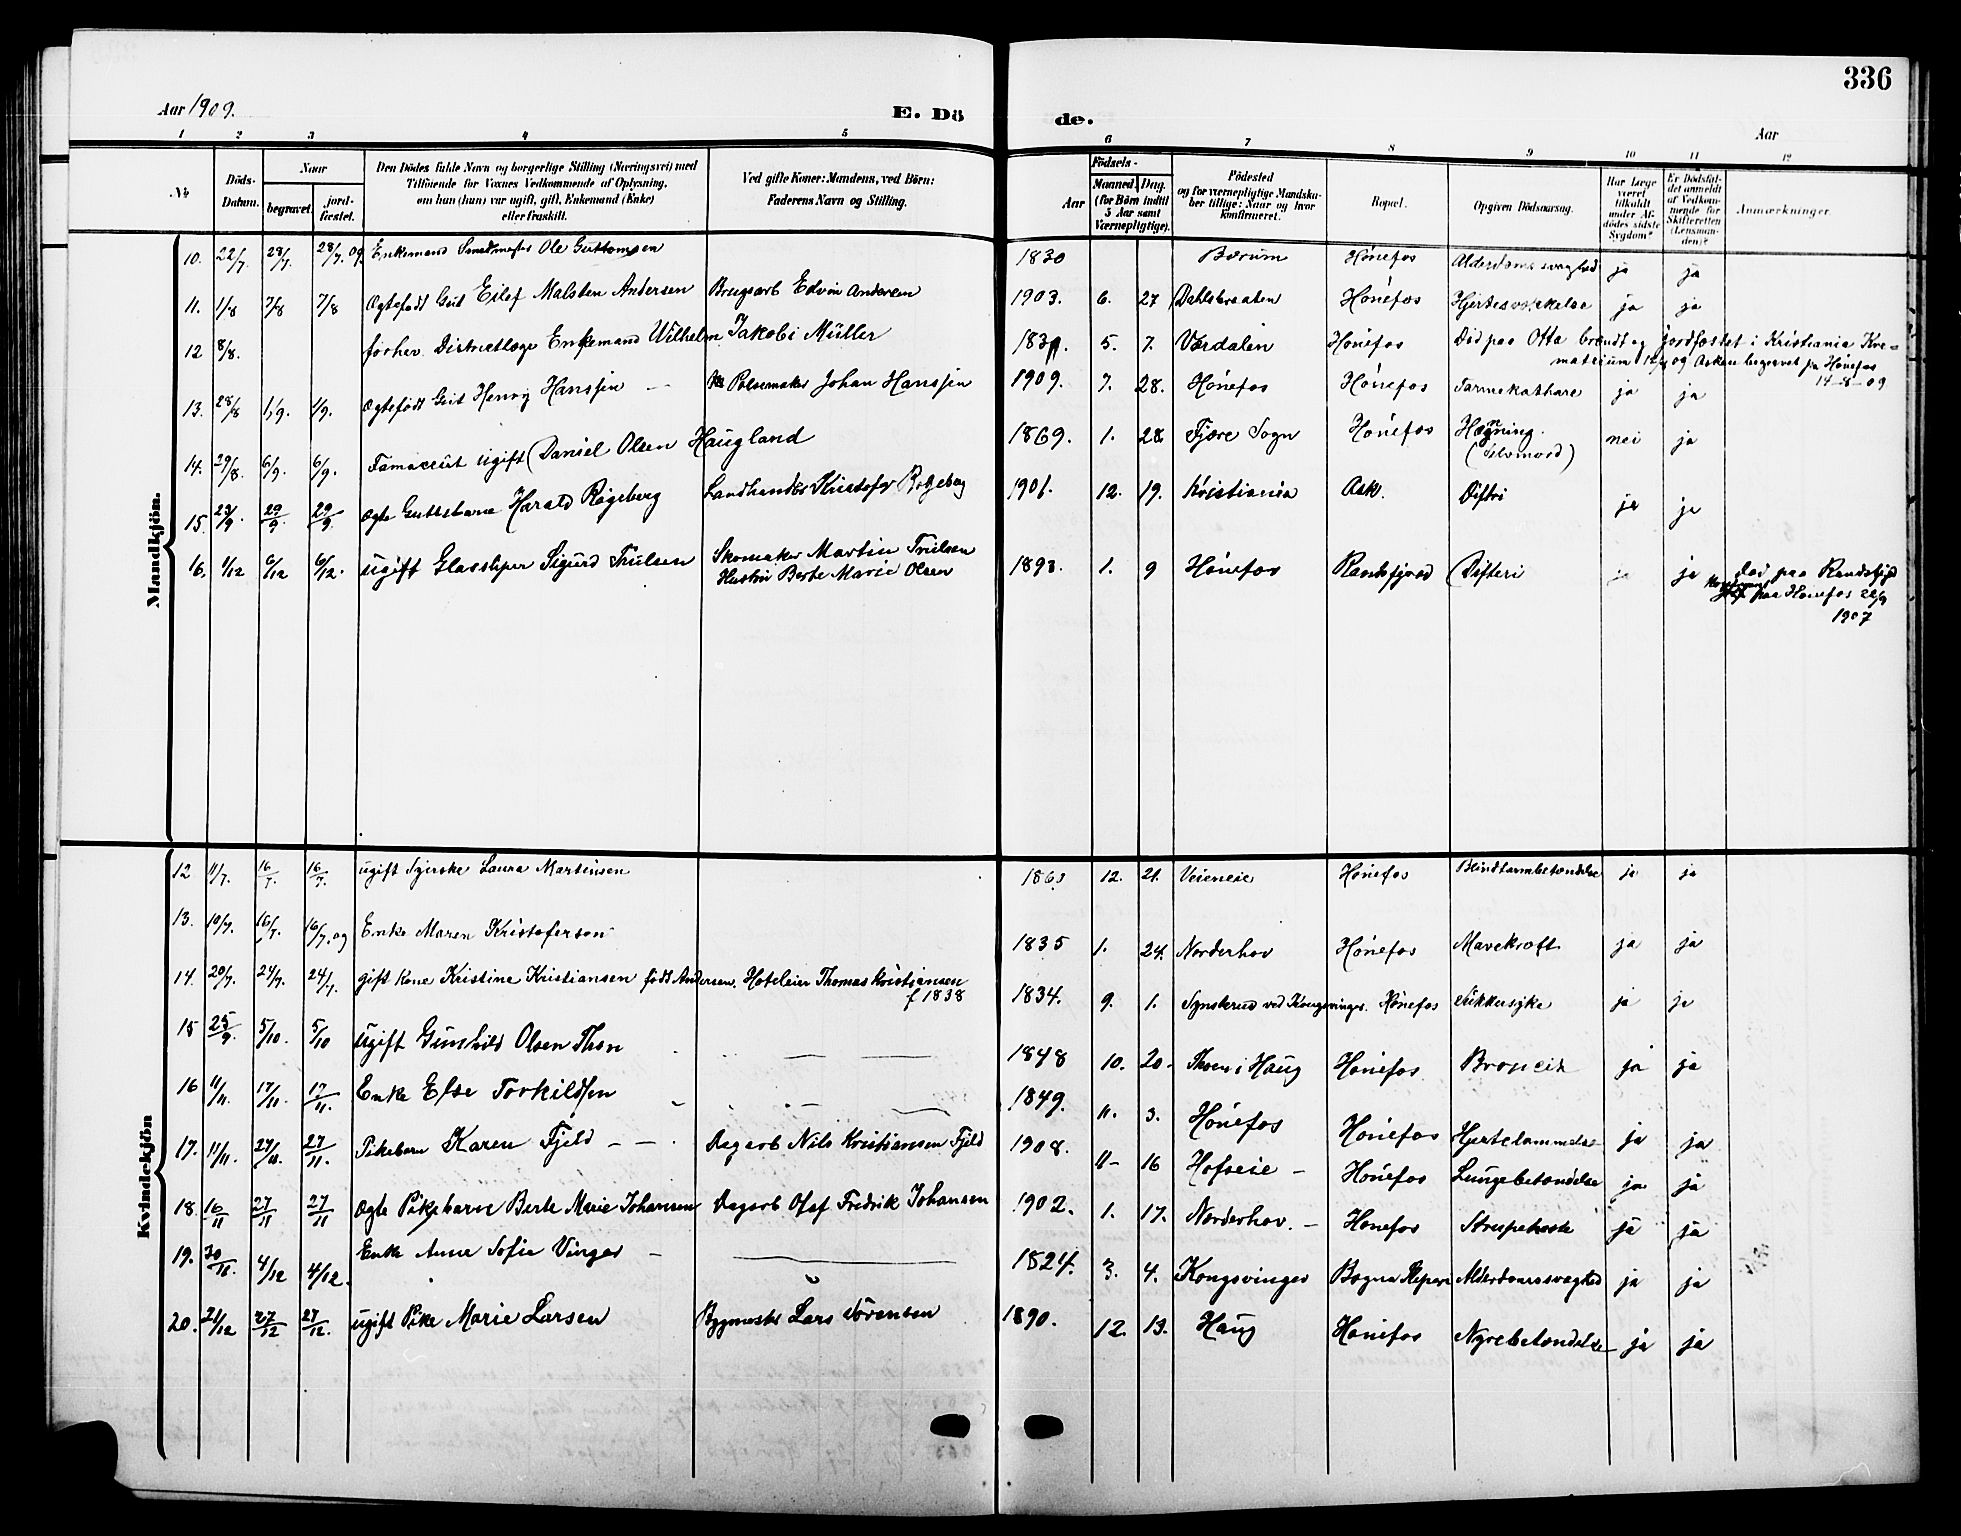 336
Aar 1909.
E. Dö
de.
Aar
1 2 3 4 5 6 7 8 9 10 11 12
No
Döds-
Datum.
Naar
begravet.
jord-
fæstet.
Den Dödes fulde Navn og borgerlige Stilling (Næringsvei) med
Tilföiende for Voxnes Vedkommende af Oplysning,
om han (hun) var ugift, gift, Enkemand (Enke)
eller fraskilt.
Ved gifte Koner: Mandens, ved Börn:
Faderens Navn og Stilling.
Födsels-
Aar
Maaned. Dag.
(for Börn indtil
5 Aar samt
Værnepligtige).
Födested
og for værnepligtige Mandska-
ber tillige: Naar og hvor
konfirmeret.
Bopæl.
Opgiven Dödsaarsag.
Har Læge
været
tilkaldt
under Af-
dödes sidste
Sygdom?
Er Dödsfal-
det anmeldt
af Vedkom-
mende for
Skifteretten
(Lensman-
den)?
Anmærkninger.
Mandkjön.
10. 22/7. 28/7. 28/7. 09 Enkemand Ole Guttomsen 1830 Bærum Hönefos Alderdomssvaghed ja ja
11. 1/8 7/8 7/8 Ægtefödt Gut Eilef Malsten Andersen Brugsarb Edvin Andersen 1903. 6. 27 Dahlsbraaten Hönefos ja ja
12 8/8. forhev. Districtlæge Enkemand Wilhelm Jakobi Müller 5. 7. Værdalen Hönefos Död paa Otta brændt og jordfæstet i Kristiania Kre-
matorium 12/8 09 Asken begravet på Hönefos
14-8-09
13. 28/8 1/9. 1/9. Ægtefödt Gut Henry Hanssen - Pölsemaker Johan Hanssen 1909. 7. 28. Hönefos Hönefos Tarmekathare ja ja
14. 29/8. 6/9. 6/9. ugift Daniel Olsen Haugland 1869. 1. 28 Fjære Sogn Hönefos Hængning.
(Selvmord) nei ja
15. 23/9. 29/9. 29/9. Ægte Guttebarn Harald Rögeberg Landhandler 1901. 12. 19. Kristiania Ask. Difteri ja ja
16. 1/12 6/12 6/12. ugift Glassliper Sigurd Trulsen Skomaker Martin Trulsen
Hustru Berte Marie Olsen 1893. 1. 9 Hönefos Randsfjord Difteri ja ja Död paa Randsfjord
paa Hönefos 22/9
1907
Kvindekjön
12 11/7. 16/7. 16/7. ugift Syerske Laura Martinsen 1863 12. 21. Veieneie Hönefos Blindtarmbetændelse ja ja
13. 10/7. 16/7. 16/7. 09 Enke Maren Kristofersen 1835 1. 24. Norderhov Hönefos Mavekræft ja ja
14. 20/7. 24/7. 24/7. gift Kone Kristine Kristiansen födt Andersen. Hoteleier Thomas Kristiansen
f 1838 1834. 9. 1. ved Kongsvinger. Hönefos Sukkersyke ja ja
15 25/9. 5/10. 5/10 ugift Gunhild Olsen Thon 1848 10. 20. Thon i Haug Hönefos ja ja
16 11/11. 17/11. 17/11. Enke Else Torkildsen 1849. 11. 3. Hönefos Hönefos Hjertelammelse ja ja
17. 11/11. 27/11. 27/11. Pikebarn Karen Fjeld - - Dagarb Nils Kristiansen Fjeld 1908. 11- 16 Hofseie - Hönefos Lungebetændelse ja ja
18. 16/11 27/11 27/11 Ægte Pikebarn Berte Marie Johansen Dagarb Olaf Fredrik Johansen 1902. 1. 17. Norderhov. - Hönefos Strupehoste ja ja
19. 30/11. 4/12 4/12. Enke Anne Sofie Vinger - 1824. 3. 4. Kongsvinger Alderdomssvaghed ja ja
20. 21/12 27/12 27/12. ugift Pike Marie Larsen Bygmester Lars Sörensen 1890. 12. 13. Haug Hönefos Nyrebetændelse ja ja